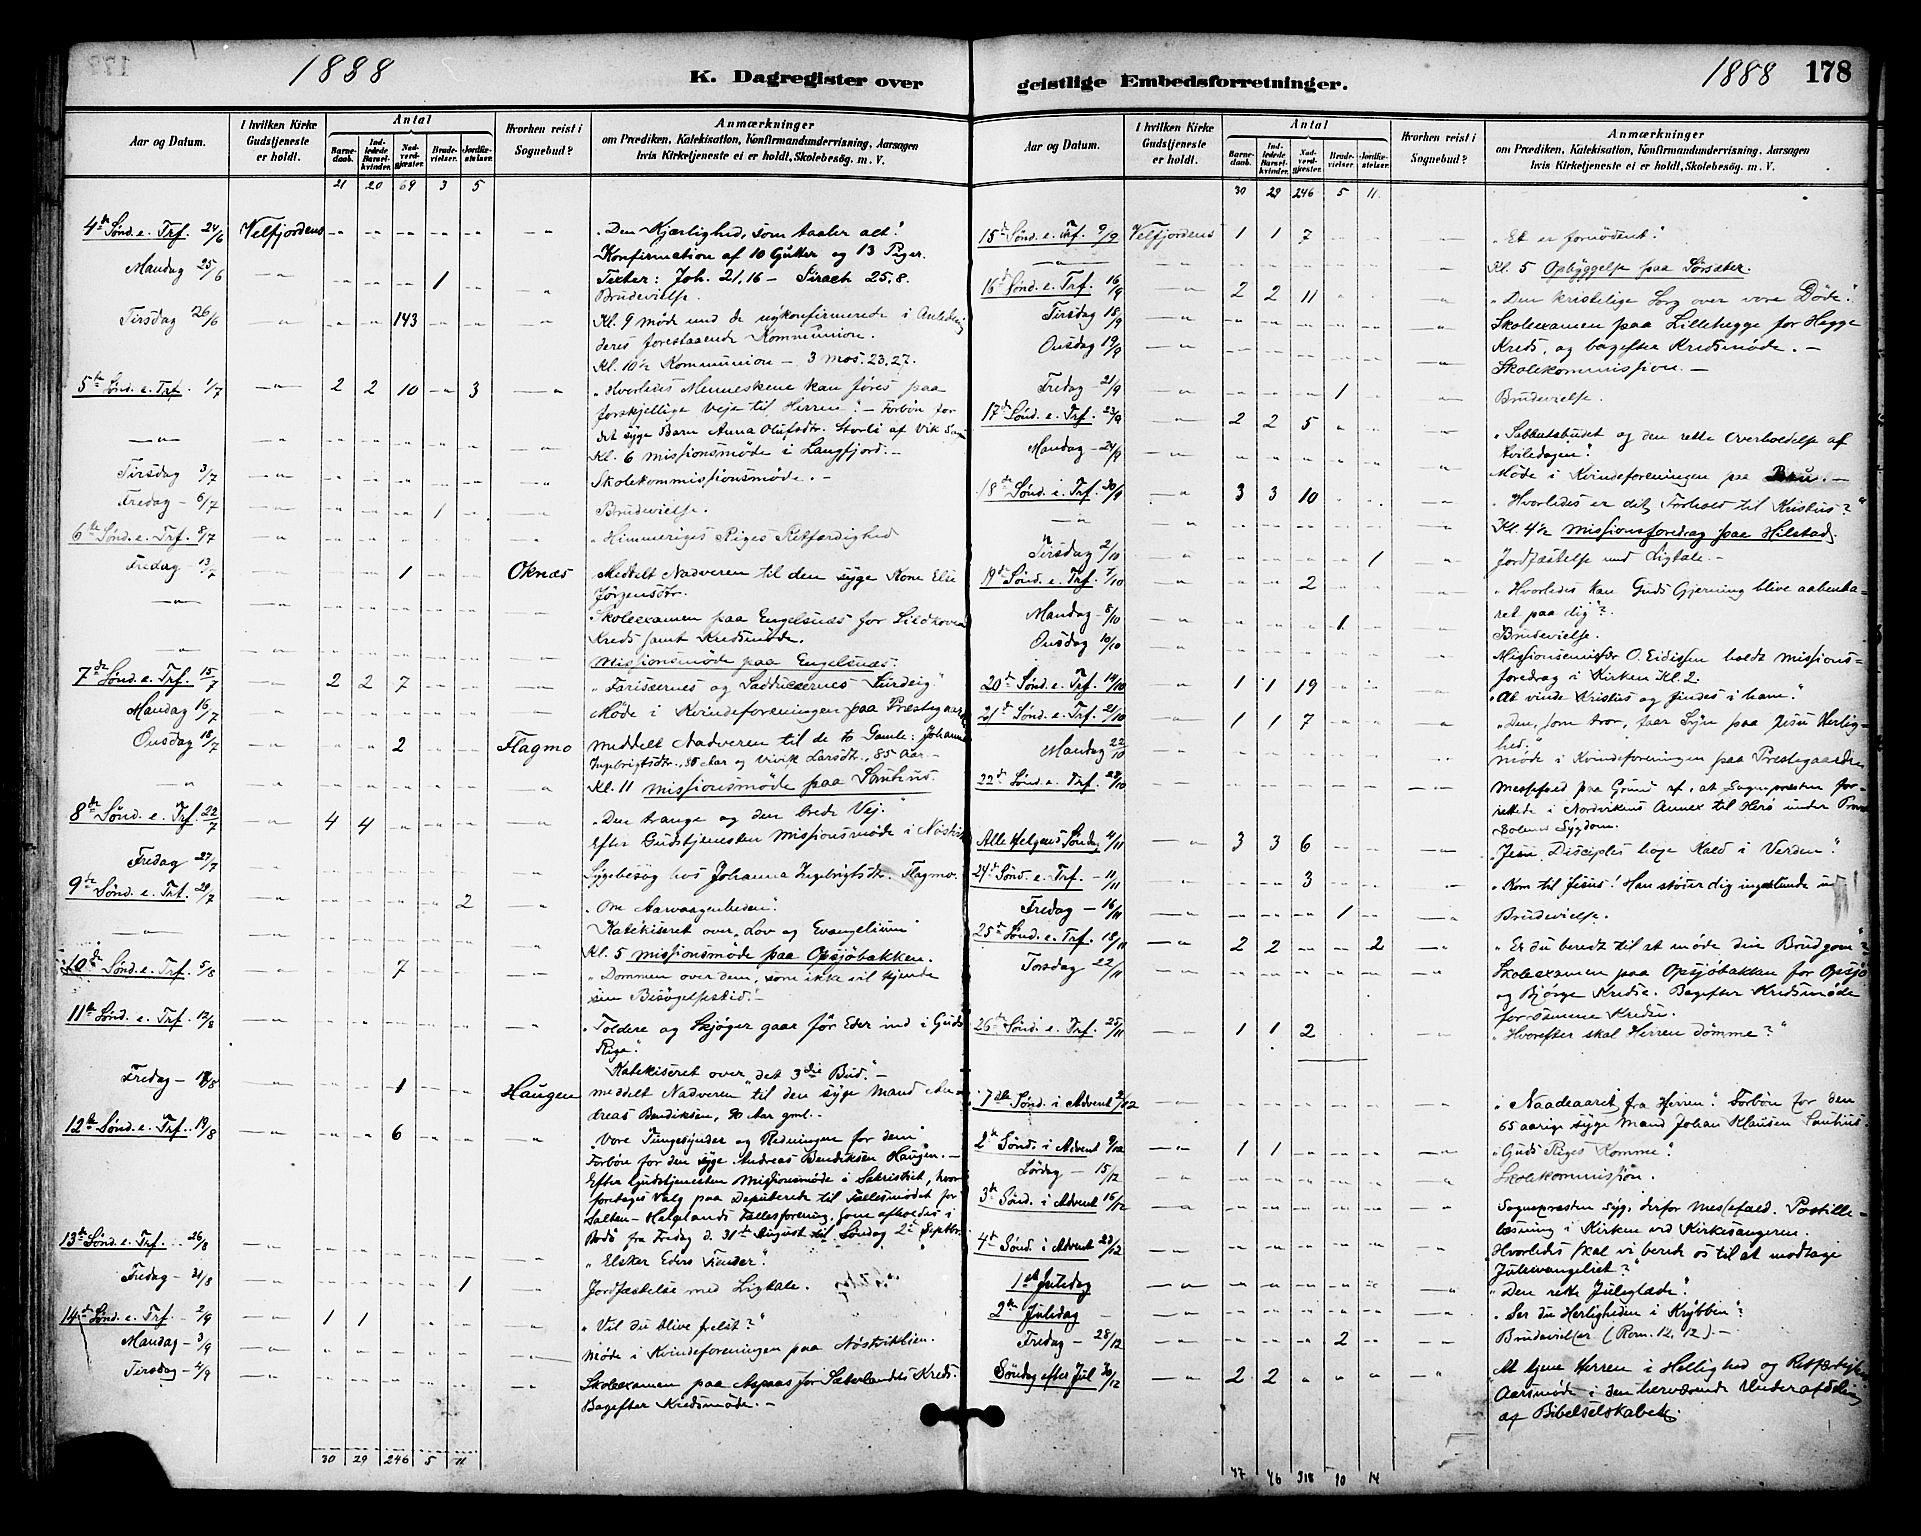 1888
K. Dagregister over
Aar og Datum.
I hvilken Kirke Gudstjeneste er holdt.
Antal
Barnedaab.
Indledede Barselkvinder.
Nadverdgjæster.
Brudevielser.
Jordfæstelser.
Hvorhen reist i Sognebud?
Anmærkninger
om Prædiken, Katekisation, Konfirmandundervisning, Aarsagen
hvis Kirketjeneste ei er holdt, Skolebesøg. m. V.
21 20 69 3 5
4de Sønd. e. Trf. 24/6 Velfjordens "Den Kjærlighed, som taaler alt".
Konfirmation af 10 Gutter og 13 Piger.
Mandag 25/6 1 Texter: Joh. 21,16 – Sirach 25,8.
Brudevielse.
Tirsdag 26/6 143 Kl. 9 Møde med de nykonfirmerede i Anledning
deres forestaaende Kommunion.
Kl. 10½ Kommunion – 3 Mos. 23,27.
5te Sønd. e. Trf. 1/7 2 2 10 3 "Hvorledes Menneskene kan føres paa
forskjellige Veje til Herren". – Forbøn for
det syge Barn Anna Olufsdtr. Storli af Vik
Kl. 6 Missionsmøde i Langfjord. –
Tirsdag 3/7 Skolekommissionsmøde. –
Fredag – 6/7 1 Brudevielse.
6te Sønd. e. Trf. 8/7 "Himmeriges Riges Retfærdighed
Fredag 13/7 1 Oknæs Meddelt Nadveren til den syge Kone Else
Jørgensdtr.
Skoleexamen paa Engelsnæs for
Kreds samt Kredsmøde.
Missionsmøde paa Engelsnæs.
7de Sønd. e. Trf. 15/7 2 2 7 "Farisæernes og Sadducæernes Surdeig"
Mandag 16/7 Møde i Kvindeforeningen paa Præstegaarden
Onsdag 18/7 2 Flagmo Meddelt Nadveren til de to Gamle: Johanna
Ingebrigtsdtr., 85 Aar og Larsdtr., 85 Aar –
Kl. 11 Missionsmøde paa Sauhus.
8de Sønd. e. Trf. 22/7 4 4 "Den trange og den brede Vej."
Efter Gudstjenesten Missionsmøde i
Fredag 27/7 Sygebesøg hos Johanna Ingebrigtsdtr. Flagmo.
9de Sønd. e. Trf. 29/7 2 "Om Aarvaagenheden".
Katekiseret over "Lov og Evangelium"
Kl. 5 Missionsmøde paa Opsjøbakken.
10de Sønd. e. Trf. 5/8 7 "Dommen over dem, som ikke vil kjende
sin Besøgelsestid". –
11te Sønd. e. Trf. 12/8 "Toldere og Skjøger gaar før Eder ind i Guds
Rige".
Katekiseret over "det 3die Bud". –
Fredag – 17/8 1 Haugen Meddelt Nadveren til den syge Mand An-
dreas Bendiksen, 70 Aar gml. –
12te Sønd. e. Trf. 19/8 6 "Vore Tungesynder og Redningen for dem"
Forbøn for den syge Andreas Bendiksen Haugen. –
Efter Gudstjenesten Missionsmøde i Sakristiet, hvor
foretoges Valg paa Deputerede til Fællesmødet for
Salten–Helgelands Fællesforening, som afholdes i
Bodø fra Fredag d. 31te August til Søndag 2de Septbr.
13de Sønd. e. Trf. 26/8 "Elsker Eders Fiender".
Fredag – 31/8 1 Jordfæstelse med Ligtale.
14de Sønd. e. Trf. – 2/9 1 1 "Vil du blive frelst?"
Mandag – 3/9 Møde i Kvindeforeningen paa
Tirsdag – 4/9 Skoleexamen paa Aspaas for Sæterlandets Kreds.
Bagefter Kredsmøde. –
30 29 246 5 11
geistlige Embedsforretninger.
1888 178
Aar og Datum.
I hvilken Kirke Gudstjeneste er holdt.
Antal
Barnedaab.
Indledede Barselkvinder.
Nadverdgjæster.
Brudevielser.
Jordfæstelser.
Hvorhen reist i Sognebud?
Anmærkninger
om Prædiken, Katekisation, Konfirmandundervisning, Aarsagen
hvis Kirketjeneste ei er holdt, Skolebesøg. m. V.
30 29 246 5 11
15de Sønd. e. Trf. 9/9 Velfjordens 1 1 7 "Et er fornødent".
Kl. 5 Opbyggelse paa Sørsæter.
16de Sønd. e. Trf. 16/9 2 2 11 "Den kristelige Sorg over vore Døde".
Tirsdag 18/9 Skoleexamen paa Lillehegge for Hegge
Kreds, og bagefter Kredsmøde. –
Onsdag 19/9 Skolekommission. –
Fredag – 21/9 1 Brudevielse.
17de Sønd. e. Trf. 23/9 2 2 5 "Sabbatsbudet og den rette Overholdelse af
Hviledagen".
Mandag – 24/9 Møde i Kvindeforeningen paa
18de Sønd. e. Trf. 30/9 3 3 10 "Hvorledes er dit Forhold til Kristus?"
Kl. 4½ Missionsforedrag paa Hilstad.
Tirsdag 2/10 1 Jordfæstelse med Ligtale –
19de Sønd. e. Trf. 7/10 2 "Hvorledes kan Guds Gjerning blive aabenba-
ret paa dig"?
Mandag – 8/10 1 Brudevielse.
Onsdag 10/10 Missionsemissær O. Eidissen holdt Missions-
foredrag i Kirken Kl. 2.
20de Sønd. e. Trf. 14/10 1 1 19 "At vinde Kristus og findes i ham".
21de Sønd. e. Trf. 21/10 1 1 7 "Den, som tror, faar Syn paa Jesu Herlig-
hed".
Mandag 22/10 Møde i Kvindeforeningen paa Prestegaarden
22de Sønd. e. Trf. 28/10 Messefald paa Grund af, at Sognepræsten for-
rettede i Nordvikens Annex til Herø under
Sygdom.
Alle Helgens Søndag 4/11 3 3 6 "Jesu Disciples høje Kald i Verden".
24de Sønd. e. Trf. – 11/11 3 "Kom til Jesus! Han støder dig ingenlunde ud
Fredag – 16/11 1 Brudevielse.
25de Sønd. e. Trf. 18/11 2 2 2 "Er du beredt til at møde din Brudgom"?
Torsdag 22/11 Skoleexamen paa Opsjøbakken for Opsjø
og Bjørge Kredse. Bagefter Kredsmøde
for samme Kredse.
26de Sønd. e. Trf. 25/11 1 1 2 "Hvorefter skal Herren dømme?"
Sønd. i Advent 2/12 "Naadeaaret fra Herren". Forbøn for den
65 aarige syge Mand Johan Klausen Sauhus.
2de Sønd. i Advent 9/12 1 1 "Guds Riges Komme".
Lørdag – 15/12 Skolekommission.
3de Sønd. i Advent 16/12 Sognepræsten syg, derfor Messefald. Postille-
læsning i Kirken ved Kirkesangeren.
4de Sønd. i Advent 23/12 Hvorledes skal vi berede os til at modtage
Juleevangeliet?"
1ste Juledag "Den rette Juleglæde".
2den Juledag – "Ser du Herligheden i Krybben"?
Fredag – 28/12 2 Brudevielser (Rom. 12,12). –
Søndag efter Jul 30/12 2 2 At tjene Herren i Hellighed og Retfærdighed
Aarsmøde i den herværende Underafdeling
af Bibelselskabet.
47 46 318 10 14